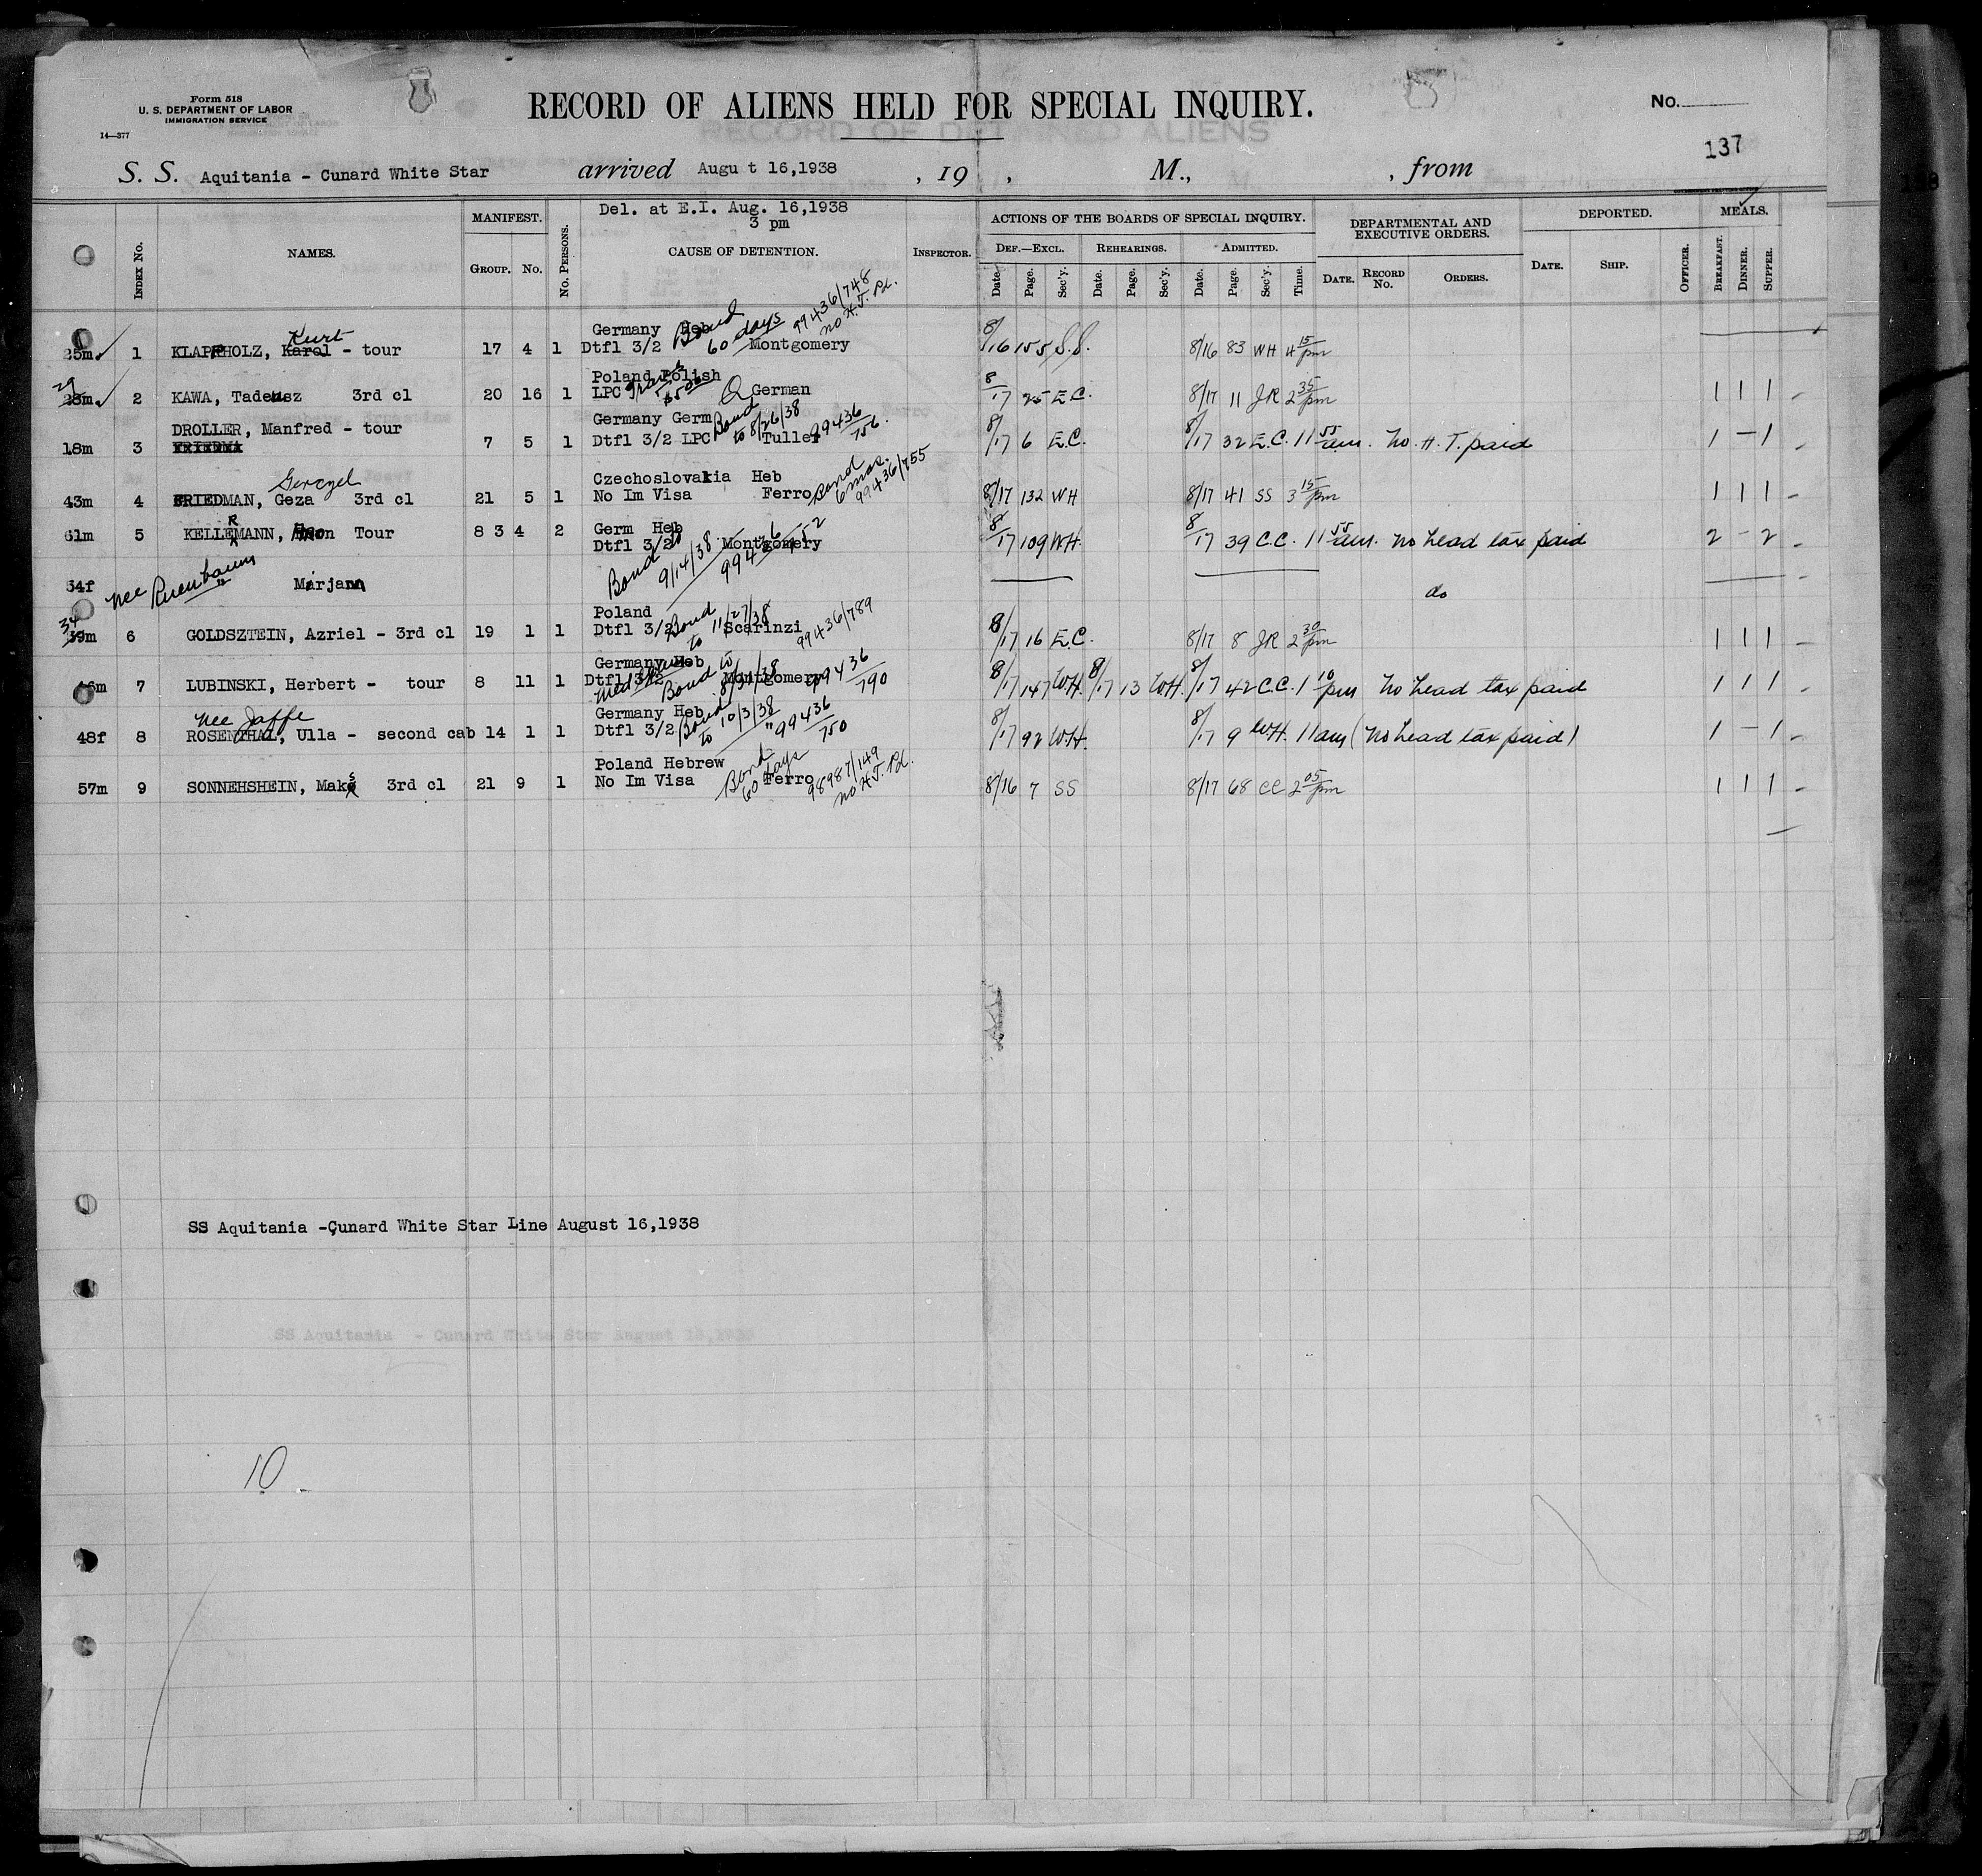 Form 518
U. S. DEPARTMENT OF LABOR
IMMIGRATION SERVICE
14—377
RECORD OF ALIENS HELD FOR SPECIAL INQUIRY.
No.
137
S. S. Aquitania - Cunard White Star arrived Augu t 16,1938 , 19 , M., , from
INDEX No. NAMES. MANIFEST. GROUP. No. No. PERSONS. Del. at E.I. Aug. 16,1938 3 pm CAUSE OF DETENTION. INSPECTOR. ACTIONS OF THE BOARDS OF SPECIAL INQUIRY. DEF.—EXCL. Date. Page. Sec'y. REHEARINGS. Date. Page. Sec'y. ADMITTED. Date. Page. Sec'y. Time. DEPARTMENTAL AND EXECUTIVE ORDERS. DATE. RECORD No. ORDERS. DEPORTED. DATE. SHIP. OFFICER. MEALS. BREAKFAST. DINNER. SUPPER.
Kurt Germany Heb Bond 60 days 99436/748 no H.T. Pd.
25m 1 KLAPPHOLZ, Karol - tour 17 4 1 Dtfl 3/2 Montgomery 8/16 155 S.S. 8/16 83 WH 4 15 pm
29 Poland Polish $500
28m 2 KAWA, Tadeusz 3rd cl 20 16 1 LPC German 8/17 25 E.C. 8/17 11 JR 2 35 pm 1 1 1
DROLLER, Manfred - tour Germany Germ Bond to 8/26/38 99436/756.
18m 3 FRIEDMA 7 5 1 Dtfl 3/2 LPC Tuller 8/17 6 E.C. 8/17 32 E.C. 11 55 am. No. H. T. paid 1 - 1
Gerczel Czechoslovakia Heb Bond 6 mos. 99436/755
43m 4 FRIEDMAN, Geza 3rd cl 21 5 1 No Im Visa Ferro 8/17 132 WH 8/17 41 SS 3 15 pm 1 1 1
R Germ Heb
61m 5 KELLEMANN, on Tour 8 3 4 2 Dtfl 3/2 Montgomery 8/17 109 WH. 8/17 39 C.C. 11 55 am. No head tax paid 2 - 2
Bond to 9/14/38 99436/752
54f nee " Marjann do
34 Poland Bond to 11/27/38 99436/789
39m 6 GOLDSZTEIN, Azriel - 3rd cl 19 1 1 Dtfl 3/2 Scarinzi 8/17 16 E.C. 8/17 8 JR 2 30 pm 1 1 1
Germany Heb Bond to 8/31/38 99436/790
46m 7 LUBINSKI, Herbert - tour 8 11 1 Dtfl 3/2 Montgomery 8/17 147 W.H. 8/17 13 W.H. 8/17 42 C.C. 1 10 pm No head tax paid 1 1 1
nee Jaffe Germany Heb Bond to 10/3/38 99436/750
48f 8 ROSENTHAL, Ulla - second cab 14 1 1 Dtfl 3/2 " 8/17 92 W.H. 8/17 9 W.H. 11 am (No head tax paid) 1 - 1
Poland Hebrew Bond 60 days 98987/149 no H.T. Pd.
57m 9 SONNEHSHEIN, Maks 3rd cl 21 9 1 No Im Visa Ferro 8/16 7 SS 8/17 68 CC 2 05 pm 1 1 1
SS Aquitania -Cunard White Star Line August 16,1938
SS Aquitania - Cunard White Star August 16,1938
10